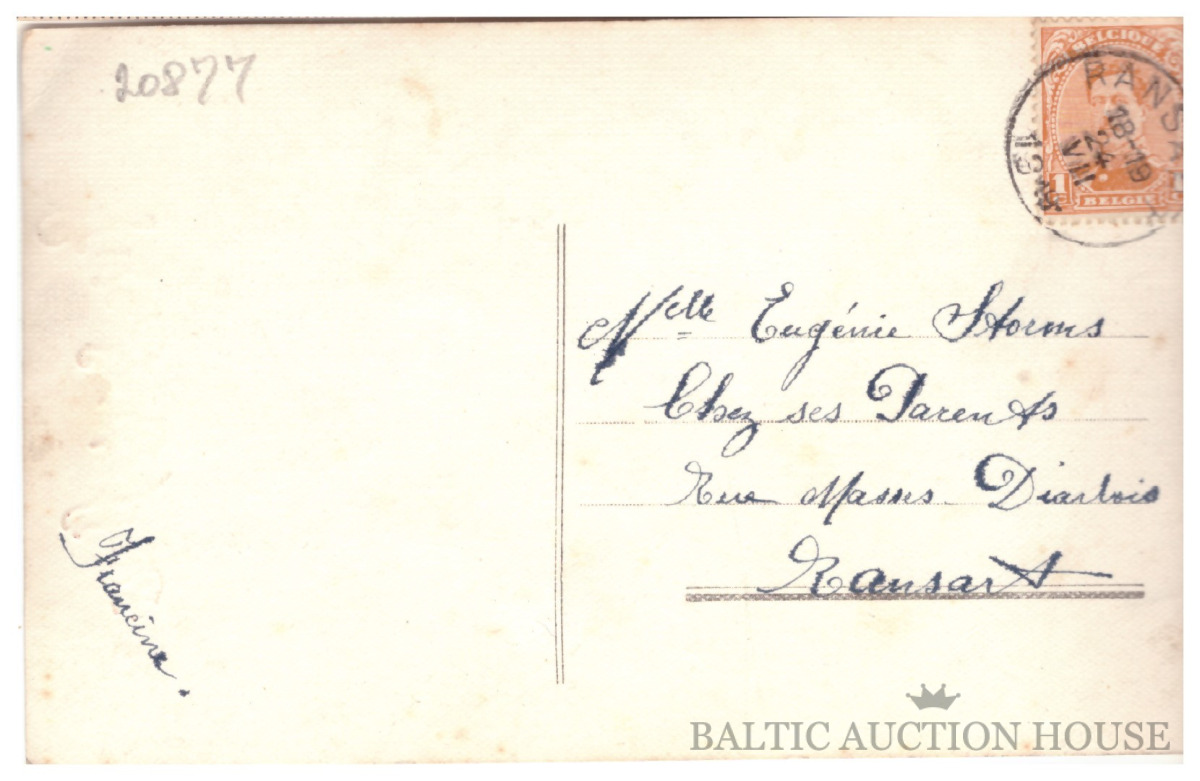 20877
BELGIQUE
RANSA
18-19
24
VII
19
1
BELGIE
Melle Eugénie Storms
Chez ses Parents
Rue Masses Diarbois
Ransart
Francine.
BALTIC AUCTION HOUSE